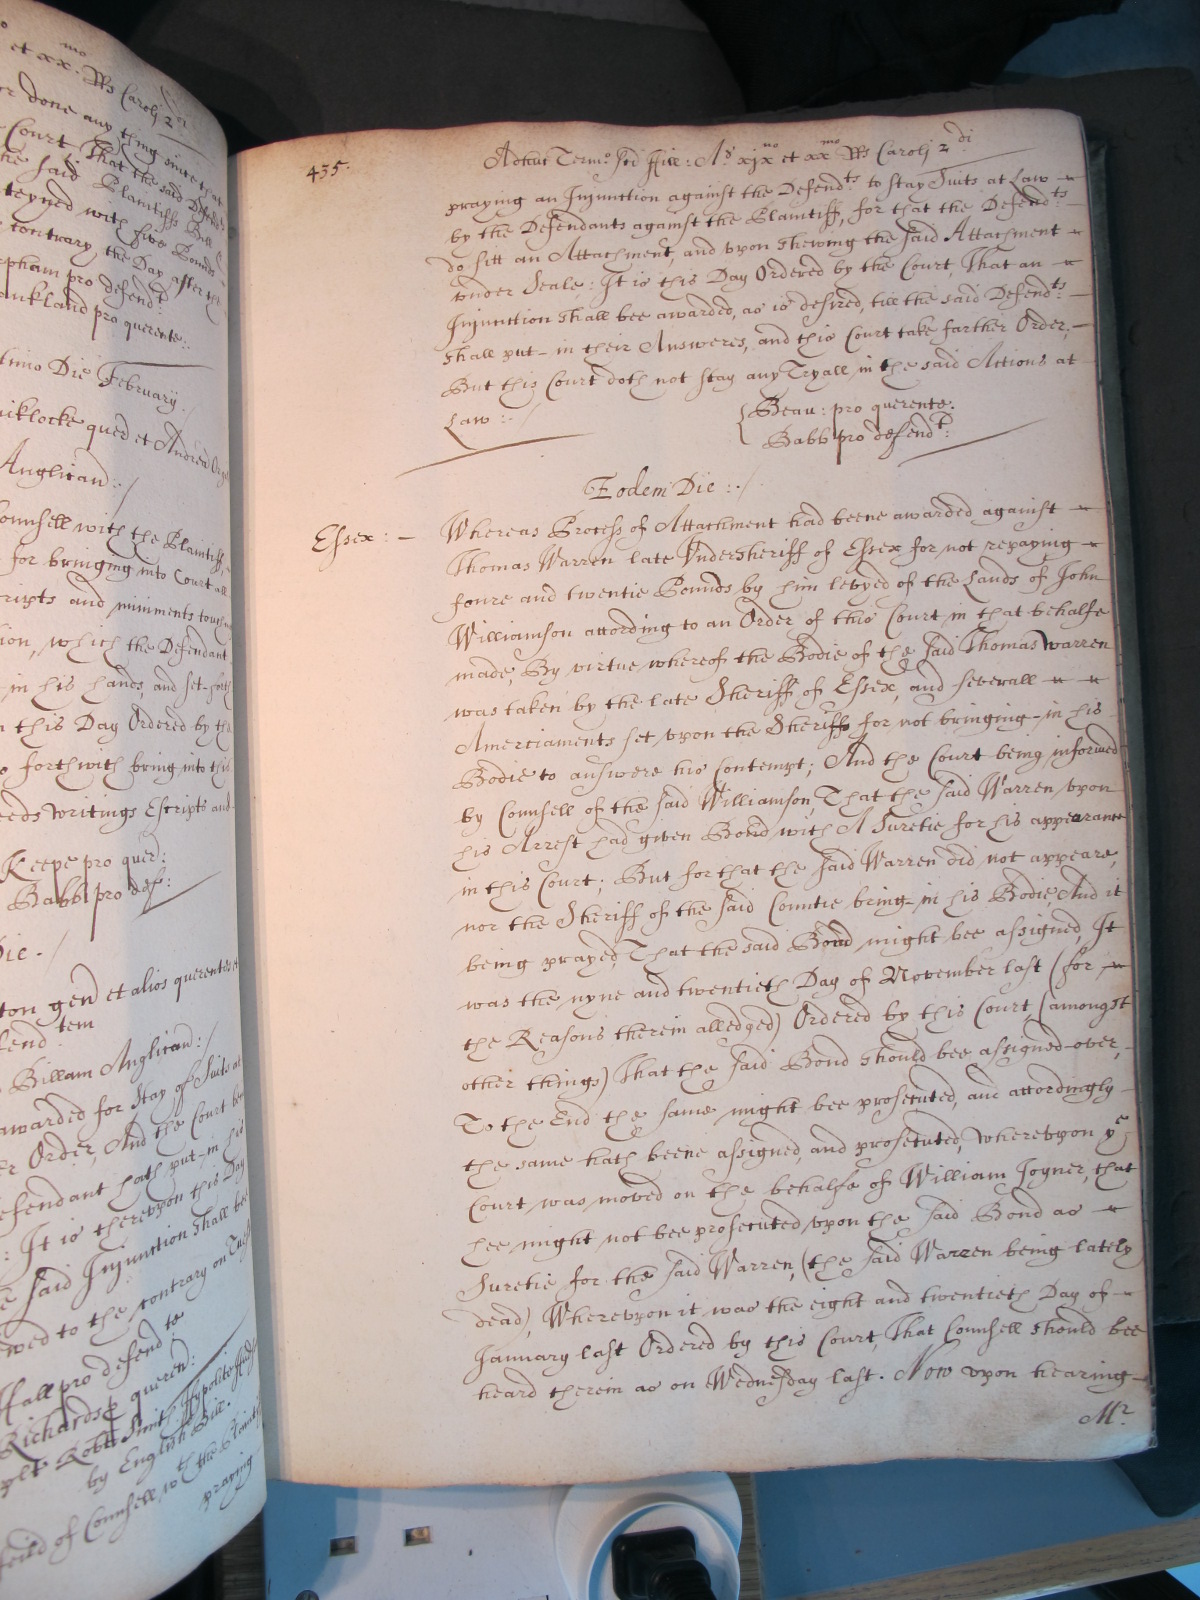 et xx.mo Rs Caroli 2 di
or done any thing since that
Court That the said Defend
the said Plaintiffs Bill
teyned with five Pounds
contrary the Day after the
pham pro defend.t
aukland pro querente:
timo Die February.
uiklocke quer et Andrea
Anglican:./
Counsell with the Plaintiff,
for bringing into Court all
cripts and miniments touch
ion, which the Defendant
in his hands, and set-forth
n this Day Ordered by the
o forthwith bring into this
eeds Writings Escripts and
Keepe pro quer:
Babb pro def:
Die./
ton gen et alios querentes
fend.tem
Billam Anglican:/
awarded for Stay of Suits at
er Order, And the Court
efendant hath put-in his
: It is thereupon this Day
e said Injunction shall bee
wed to the contrary on
Hall pro defend te
Richards quer en:
plt Robte Smith Hypolite
by English Bill.
feild of Counsell wth the Plaintiff
praying
435.
Adhuc Term.o Sci Hill: A.o xix.no et xx.mo Rs Caroli 2 di
praying an Injunction against the Defend.ts to stay Suits at Law
by the Defendants against the Plaintiff, for that the Defend.ts
do sitt an Attachment, and upon shewing the said Attachment
vnder Seale; It is this Day Ordered by the Court, That an
Injunction shall bee awarded, as is desired, till the said Defend.ts
shall put-in their Answeres, and this Court take farther Order;
But this Court doth not stay any Tryall in the said Actions at
Law:./
Beau: pro querente.
Babb pro defend.t:
Eodem Die:./
Essex:-
Whereas Process of Attachment had beene awarded against
Thomas Warren late Vndersheriff of Essex for not repaying
foure and twentie Pounds by him levyed of the Lands of John
Williamson according to an Order of this Court in that behalfe
made, By virtue whereof the Bodie of the said Thomas Warren
was taken by the late Sheriff of Essex, and severall
Amerciaments set vpon the Sheriffs for not bringing-in his
Bodie to answere his Contempt; And the Court being informed
by Counsell of the said Williamson, That the said Warren vpon
his Arrest had given Bond with A Suretie for his appearance
in this Court; But for that the said Warren did not appeare,
nor the Sheriff of the said Countie bring-in his Bodie, And it
being prayed, That the said Bond might bee assigned, It
was the nyne and twentieth Day of November last (for
the Reasons therein alledged) Ordered by this Court (amongst
other things) That the said Bond should bee assigned-over,
To the End the same might bee prosecuted, and accordingly
the same hath beene assigned, and prosecuted, wherevpon ye
Court was moved on the behalfe of William Joyner, that
hee might not bee prosecuted vpon the said Bond as
Suretie for the said Warren, (the said Warren being lately
dead), Wherevpon it was the eight and twentieth Day of
January last Ordered by this Court, That Counsell should bee
heard therein as on Wednesday last. Now vpon hearing
Mr.